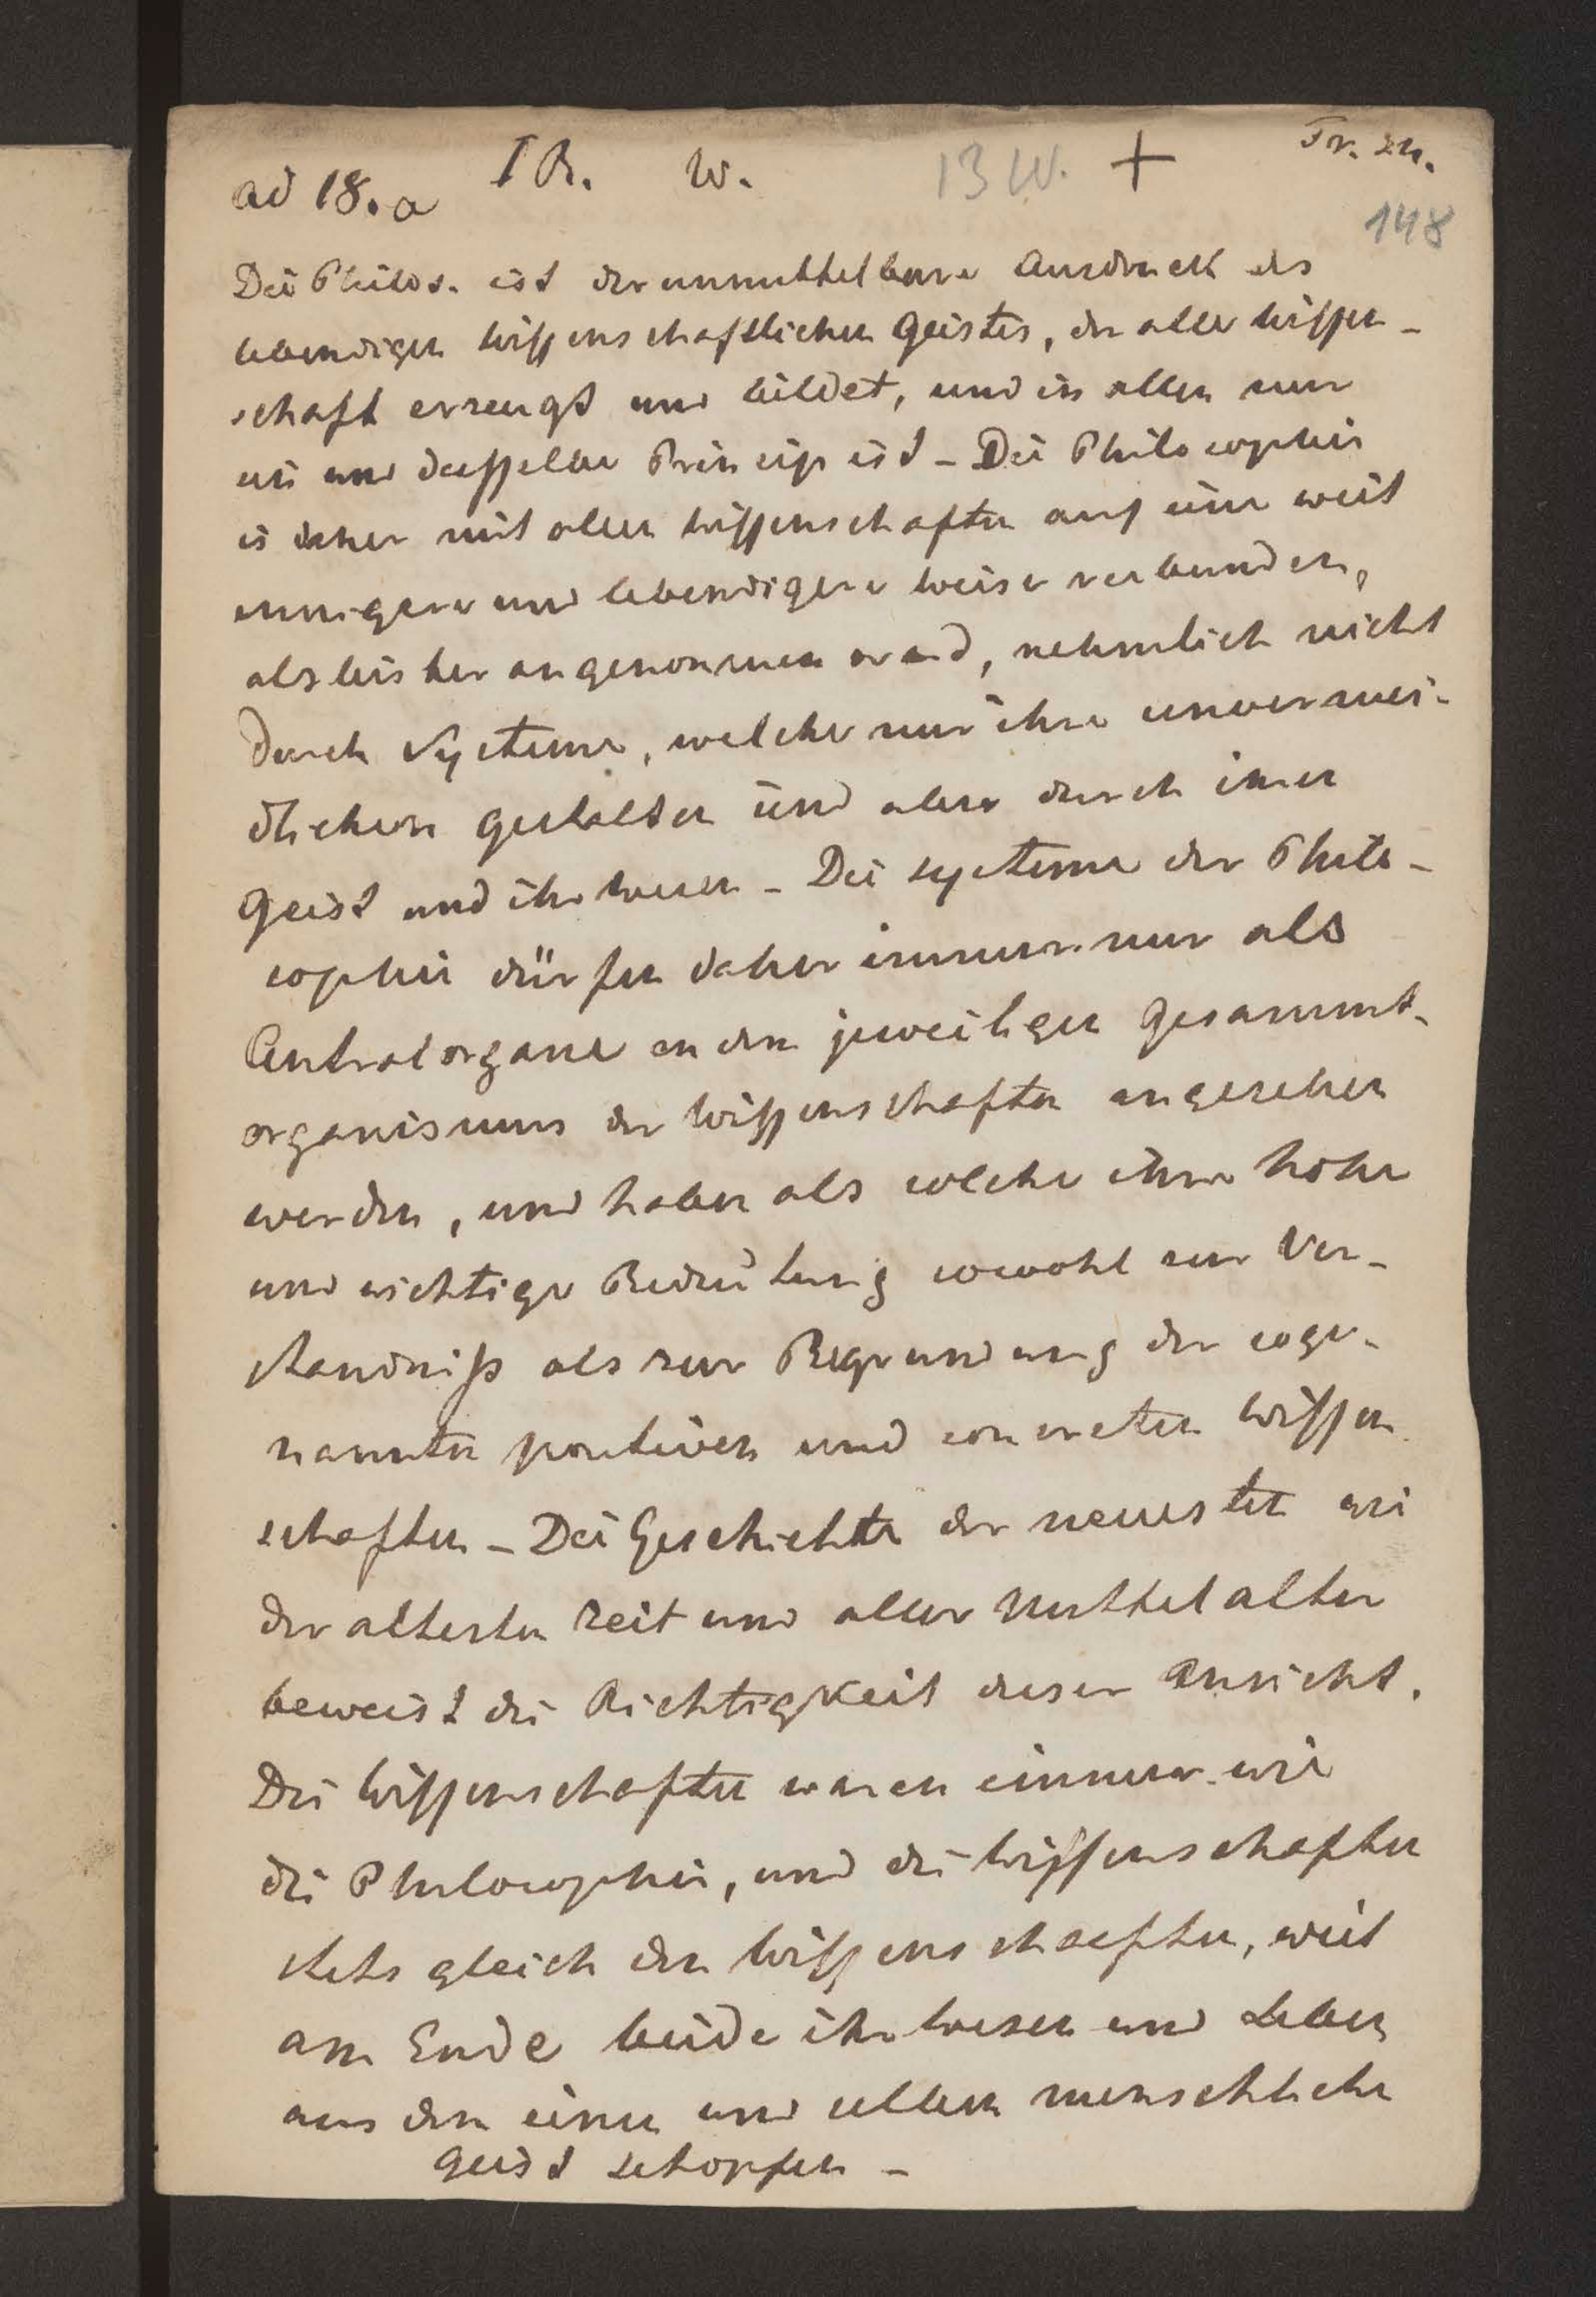 ad 18.a I R. W. 13 W. + Tr. 24.
148
Die Philos. ist der unmittelbare Ausdruck des
lebendigen wissenschaftlichen Geistes, der alle Wissen-
schaft erzeugt und bildet, und in allen nur
ein und dasselbe Princip ist - Die Philosophie
is daher mit allen Wissenschaften auf eine weit
innigere und lebendigere Weise verbunden,
als bisher angenommen ward, nehmlich nicht
durch Systeme, welche nur ihre unvermei-
dlichen Gestalten sind aber durch ihren
Geist und ihr Wesen - Die Systeme der Philo-
sophie dürfen daher immer nur als
Centralorgane in dem jeweiligen Gesammt-
organismus der Wissenschaften angesehen
werden, und haben als solche ihre hohe
und wichtige Bedeutung sowohl zur Ver-
standniß als zur Begrundung der soge-
nannten positiven und concreten Wissen
schaften - Die Geschichte der neuesten wie
der altesten Zeit und aller Mittelalter
beweist die Richtigkeit dieser Ansicht.
Die Wissenschaften waren immer wie
die Philosophie, und die Wissenschaften
stets gleich den Wissenschaften, weil
am Ende beide ihr Wesen und Leben
aus dem einen und selben menschlichen
Geist schopfen -